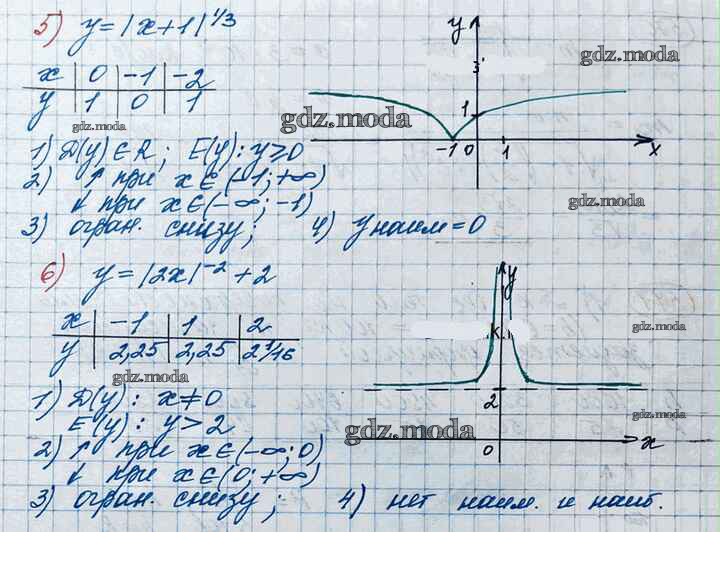 5) y = |x+1|^1/3
x | 0 | -1 | -2
y | 1 | 0 | 1
1) D(y) ∈ R; E(y): y ≥ 0
2) ↑ при x ∈ (-1; +∞)
↓ при x ∈ (-∞; -1)
3) огран. снизу; 4) y наим = 0
y
3
1
-1 0 1 x
6) y = |2x|^-2 + 2
x | -1 | 1 | 2
y | 2,25 | 2,25 | 2 1/16
1) D(y): x ≠ 0
E(y): y > 2
2) ↑ при x ∈ (-∞; 0)
↓ при x ∈ (0; +∞)
3) огран. снизу; 4) нет наим. и наиб.
y
2
0 x
gdz.moda
gdz.moda
gdz.moda
gdz.moda
gdz.moda
gdz.moda
gdz.moda
gdz.moda